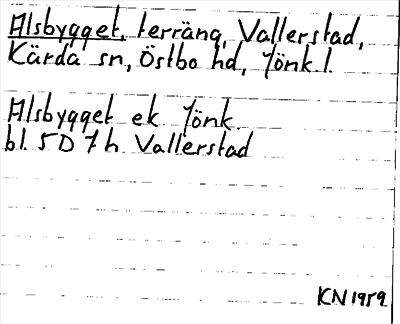 Alsbygget, terräng, Vallerstad,
Kärda sn, Östbo hd, Jönk. l.
Alsbygget ek Jönk
bl. 5D 7h. Vallerstad
KN 1959